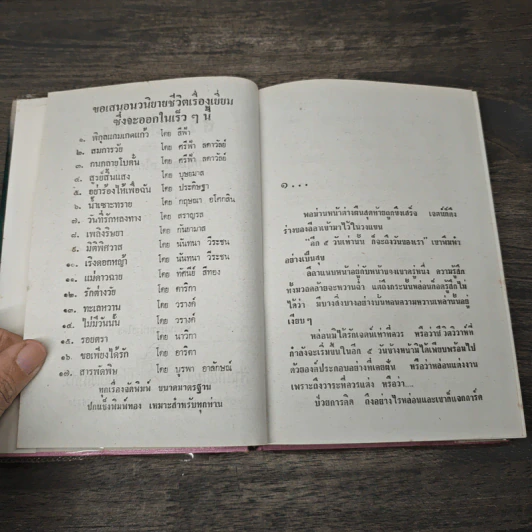 ขอเสนอนวนิยายชีวิตเรื่องเยี่ยม
ซึ่งจะออกในเร็ว ๆ นี้
๑. พิกุลแกมเกดแก้ว โดย สีฟ้า
๒. สมการวัย โดย ศรีฟ้า ลดาวัลย์
๓. คนกลายใบดั้น โดย ศรีฟ้า ลดาวัลย์
๔. สวยสิ้นแสง โดย บุษยมาส
๕. อย่าร้องไห้เพื่อฉัน โดย ประดิษฐา
๖. น้ำเซาะทราย โดย กฤษณา อโศกสิน
๗. วันที่รักหลงทาง โดย
๘. เพลิงริษยา โดย กันยามาส
๙. มิติพิศวาส โดย นันทนา วีระชน
๑๐. เริงดอกหญ้า โดย นันทนา วีระชน
๑๑. แม่ดาวฉาย โดย ทัศนีย์ สีทอง
๑๒. รักต่างวัย โดย ดาริกา
๑๓. ทะเลหวาน โดย วรางค์
๑๔. ไม่มีวันนั้น โดย วรางค์
๑๕. รอยตรา โดย นาวิกา
๑๖. ขอเพียงได้รัก โดย อาริตา
๑๗. สารพัดพิษ โดย บูรพา อาลักษณ์
ทุกเรื่องจัดพิมพ์ ขนาดมาตรฐาน
ปกแข็งพิมพ์ทอง เหมาะสำหรับทุกท่าน
๑...
หล่อนวางหน้าต่างสุดท้ายถูกขึงเสร็จ เจตน์ก็ดึง
ร่างของลีลาเข้ามาไว้ในวงแขน
"อีก ๕ วันเท่านั้น ก็จะถึงวันของเรา" เขาพึมพำ
อย่างเป็นสุข
ลีลาแนบหน้าอยู่กับหน้าของเขาครู่หนึ่ง ความรู้สึก
ทั้งมวลคล้ายจะหวานฉ่ำ แต่ถึงกระนั้นหล่อนก็อดรู้สึกไม่
ได้ว่า มีบางสิ่งบางอย่างบั่นทอนความหวานเหล่านั้นอยู่
เงียบ ๆ
หล่อนมิได้รักเจตน์เท่าที่ควร หรือว่าชีวิตวิวาห์ที่
กำลังจะเริ่มขึ้นในอีก ๕ วันข้างหน้ามิได้เพียบพร้อมไป
ด้วยองค์ประกอบอย่างที่เคยฝัน หรือว่าหล่อนแต่งงาน
เพราะถึงวาระที่ควรแต่ง หรือว่า....
ป่วยการคิด ถึงอย่างไรหล่อนและเขาก็แจกการ์ด